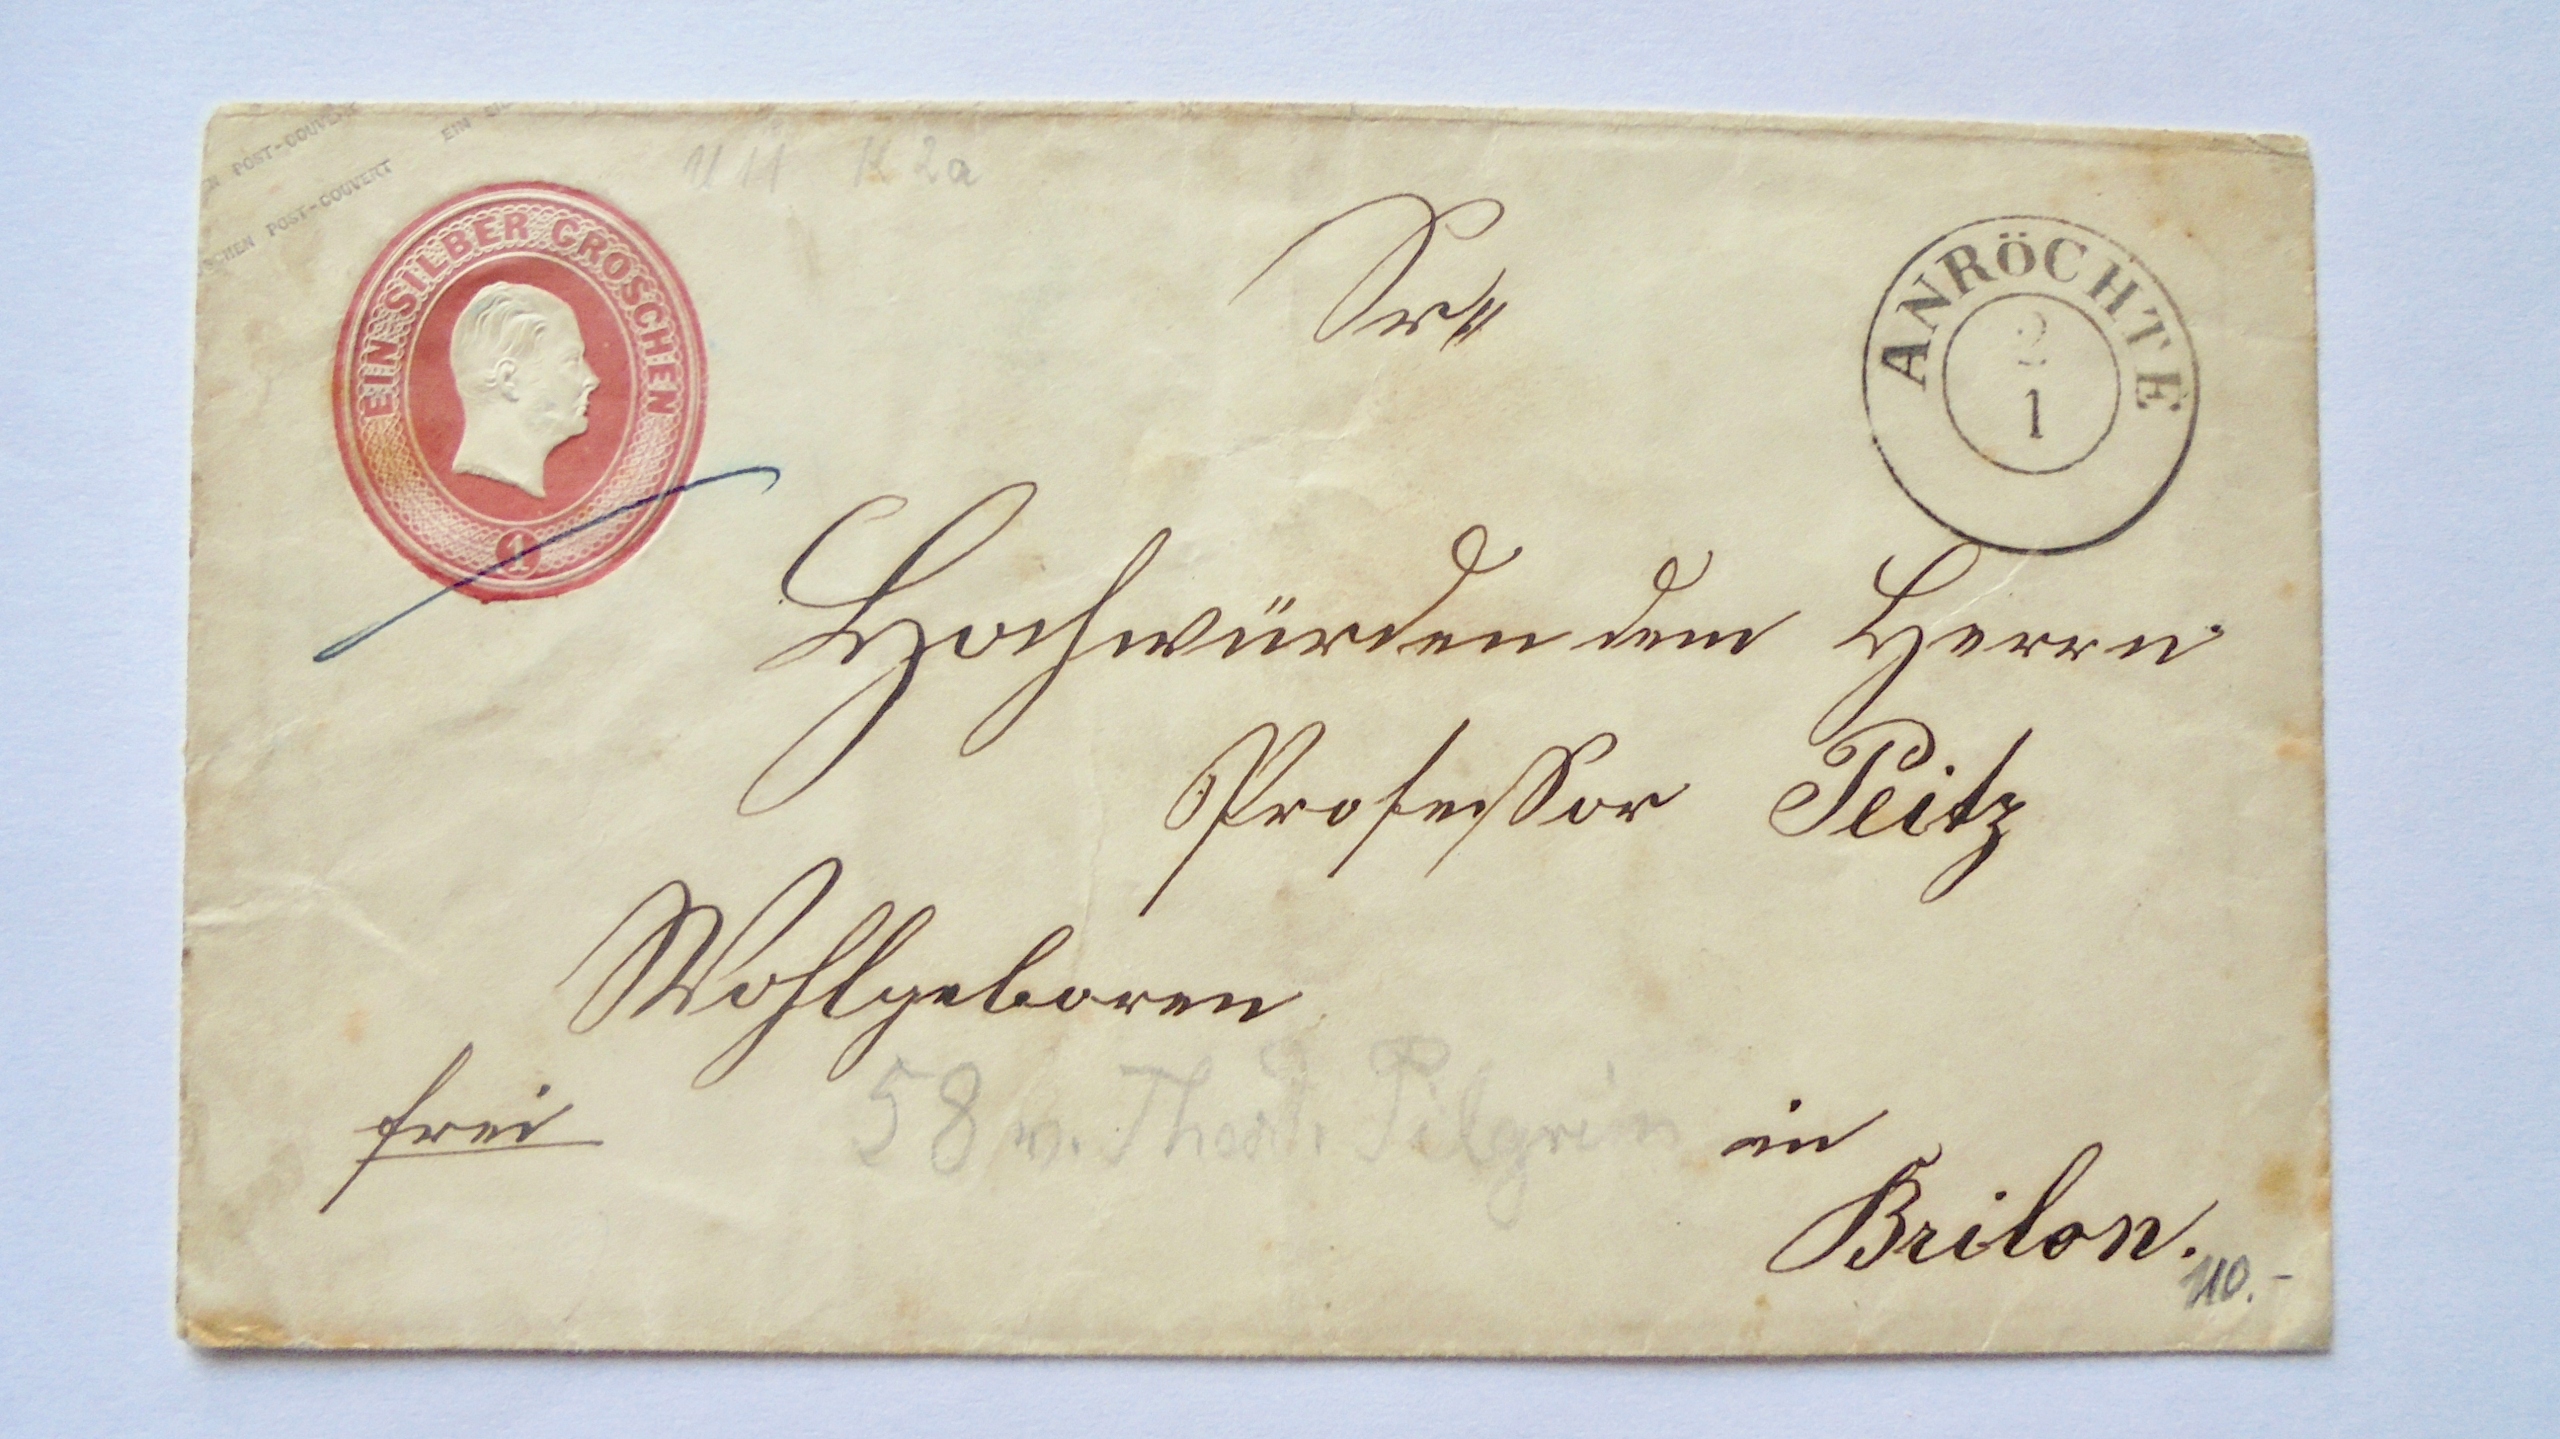 POST-COUVERT EIN
SCHEN POST-COUVERT
U 11 K 2a
EIN SILBER GROSCHEN
1
ANRÖCHTE
2
1
Sr
Hochwürden dem Herrn
Professor Peitz
Wohlgeboren
frei
58 v. Pilgrim
in
Brilon.
110.-